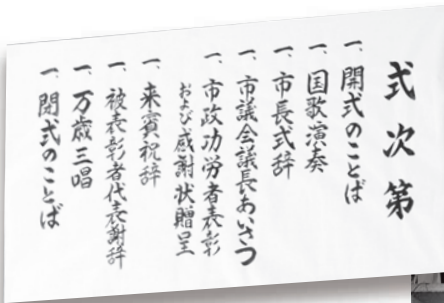 式次第
一、開式のことば
一、国歌演奏
一、市長式辞
一、市議会議長あいさつ
一、市政功労者表彰
および感謝状贈呈
一、来賓祝辞
一、被表彰者代表謝辞
一、万歳三唱
一、閉式のことば